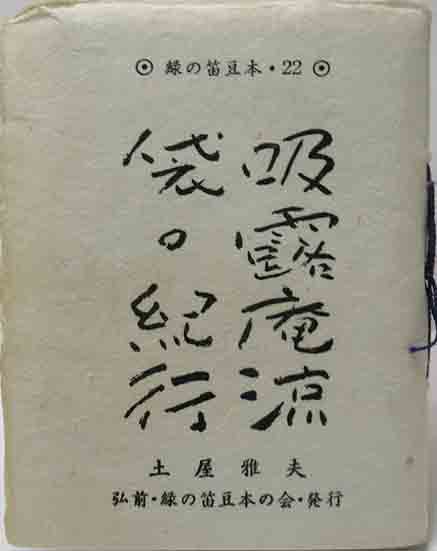 ◉ 緑の笛豆本・22 ◉
吸露庵涼
袋の紀行
土屋雅夫
弘前・緑の笛豆本の会・発行